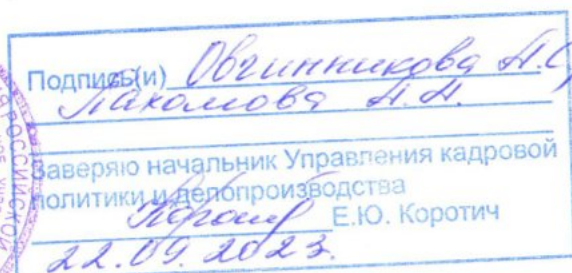 Подпись(и) Овчинникова А.С,
Пахомова А.А.
Заверяю начальник Управления кадровой
политики и делопроизводства
Е.Ю. Коротич
22.09.2023.
РОССИЙСКОЙ